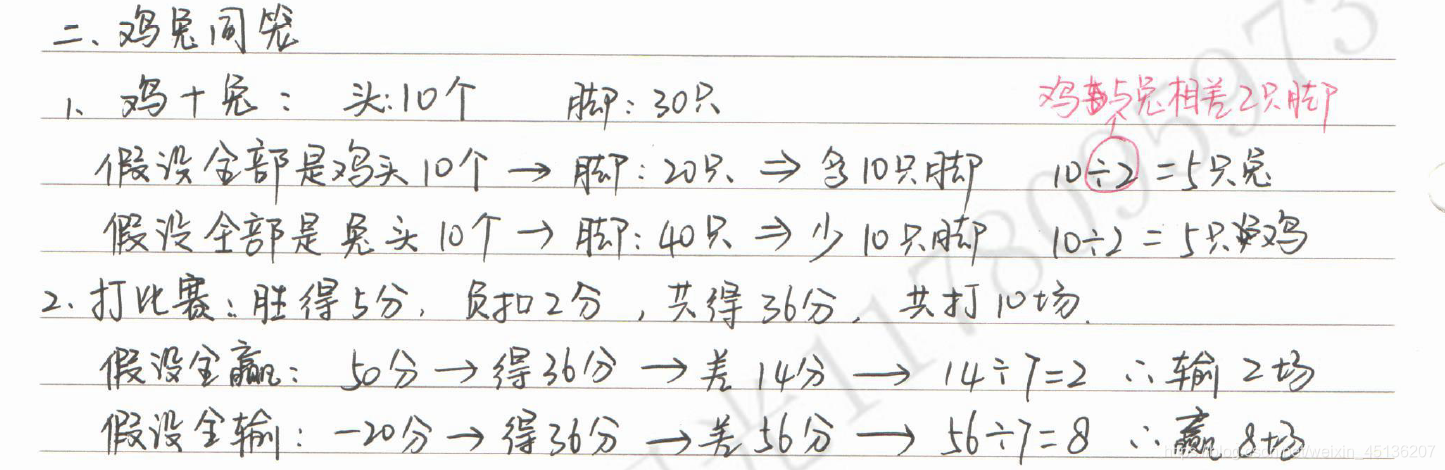 二、鸡兔同笼
1、鸡+兔： 头:10个 脚:30只
鸡与兔相差2只脚
假设全部是鸡头10个→脚:20只⇒多10只脚 10÷2=5只兔
假设全部是兔头10个→脚:40只⇒少10只脚 10÷2=5只鸡
2、打比赛:胜得5分,负扣2分,共得36分,共打10场.
假设全赢: 50分→得36分→差14分→14÷7=2 ∴输2场
假设全输: -20分→得36分→差56分→56÷7=8 ∴赢8场
weixin_45136207